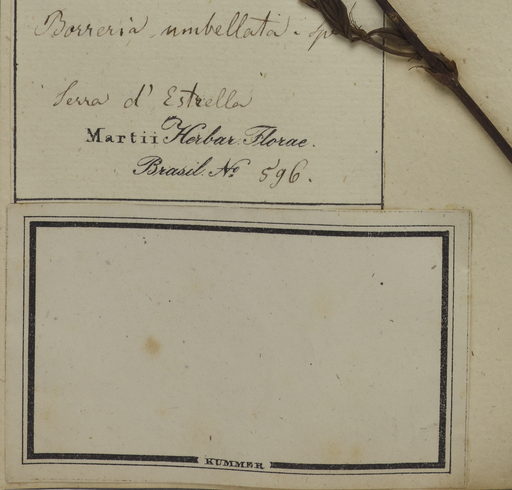 Borreria umbellata. Sp
Serra d' Estrella
Martii Herbar. Florae.
Brasil. No 596.
KUMMER